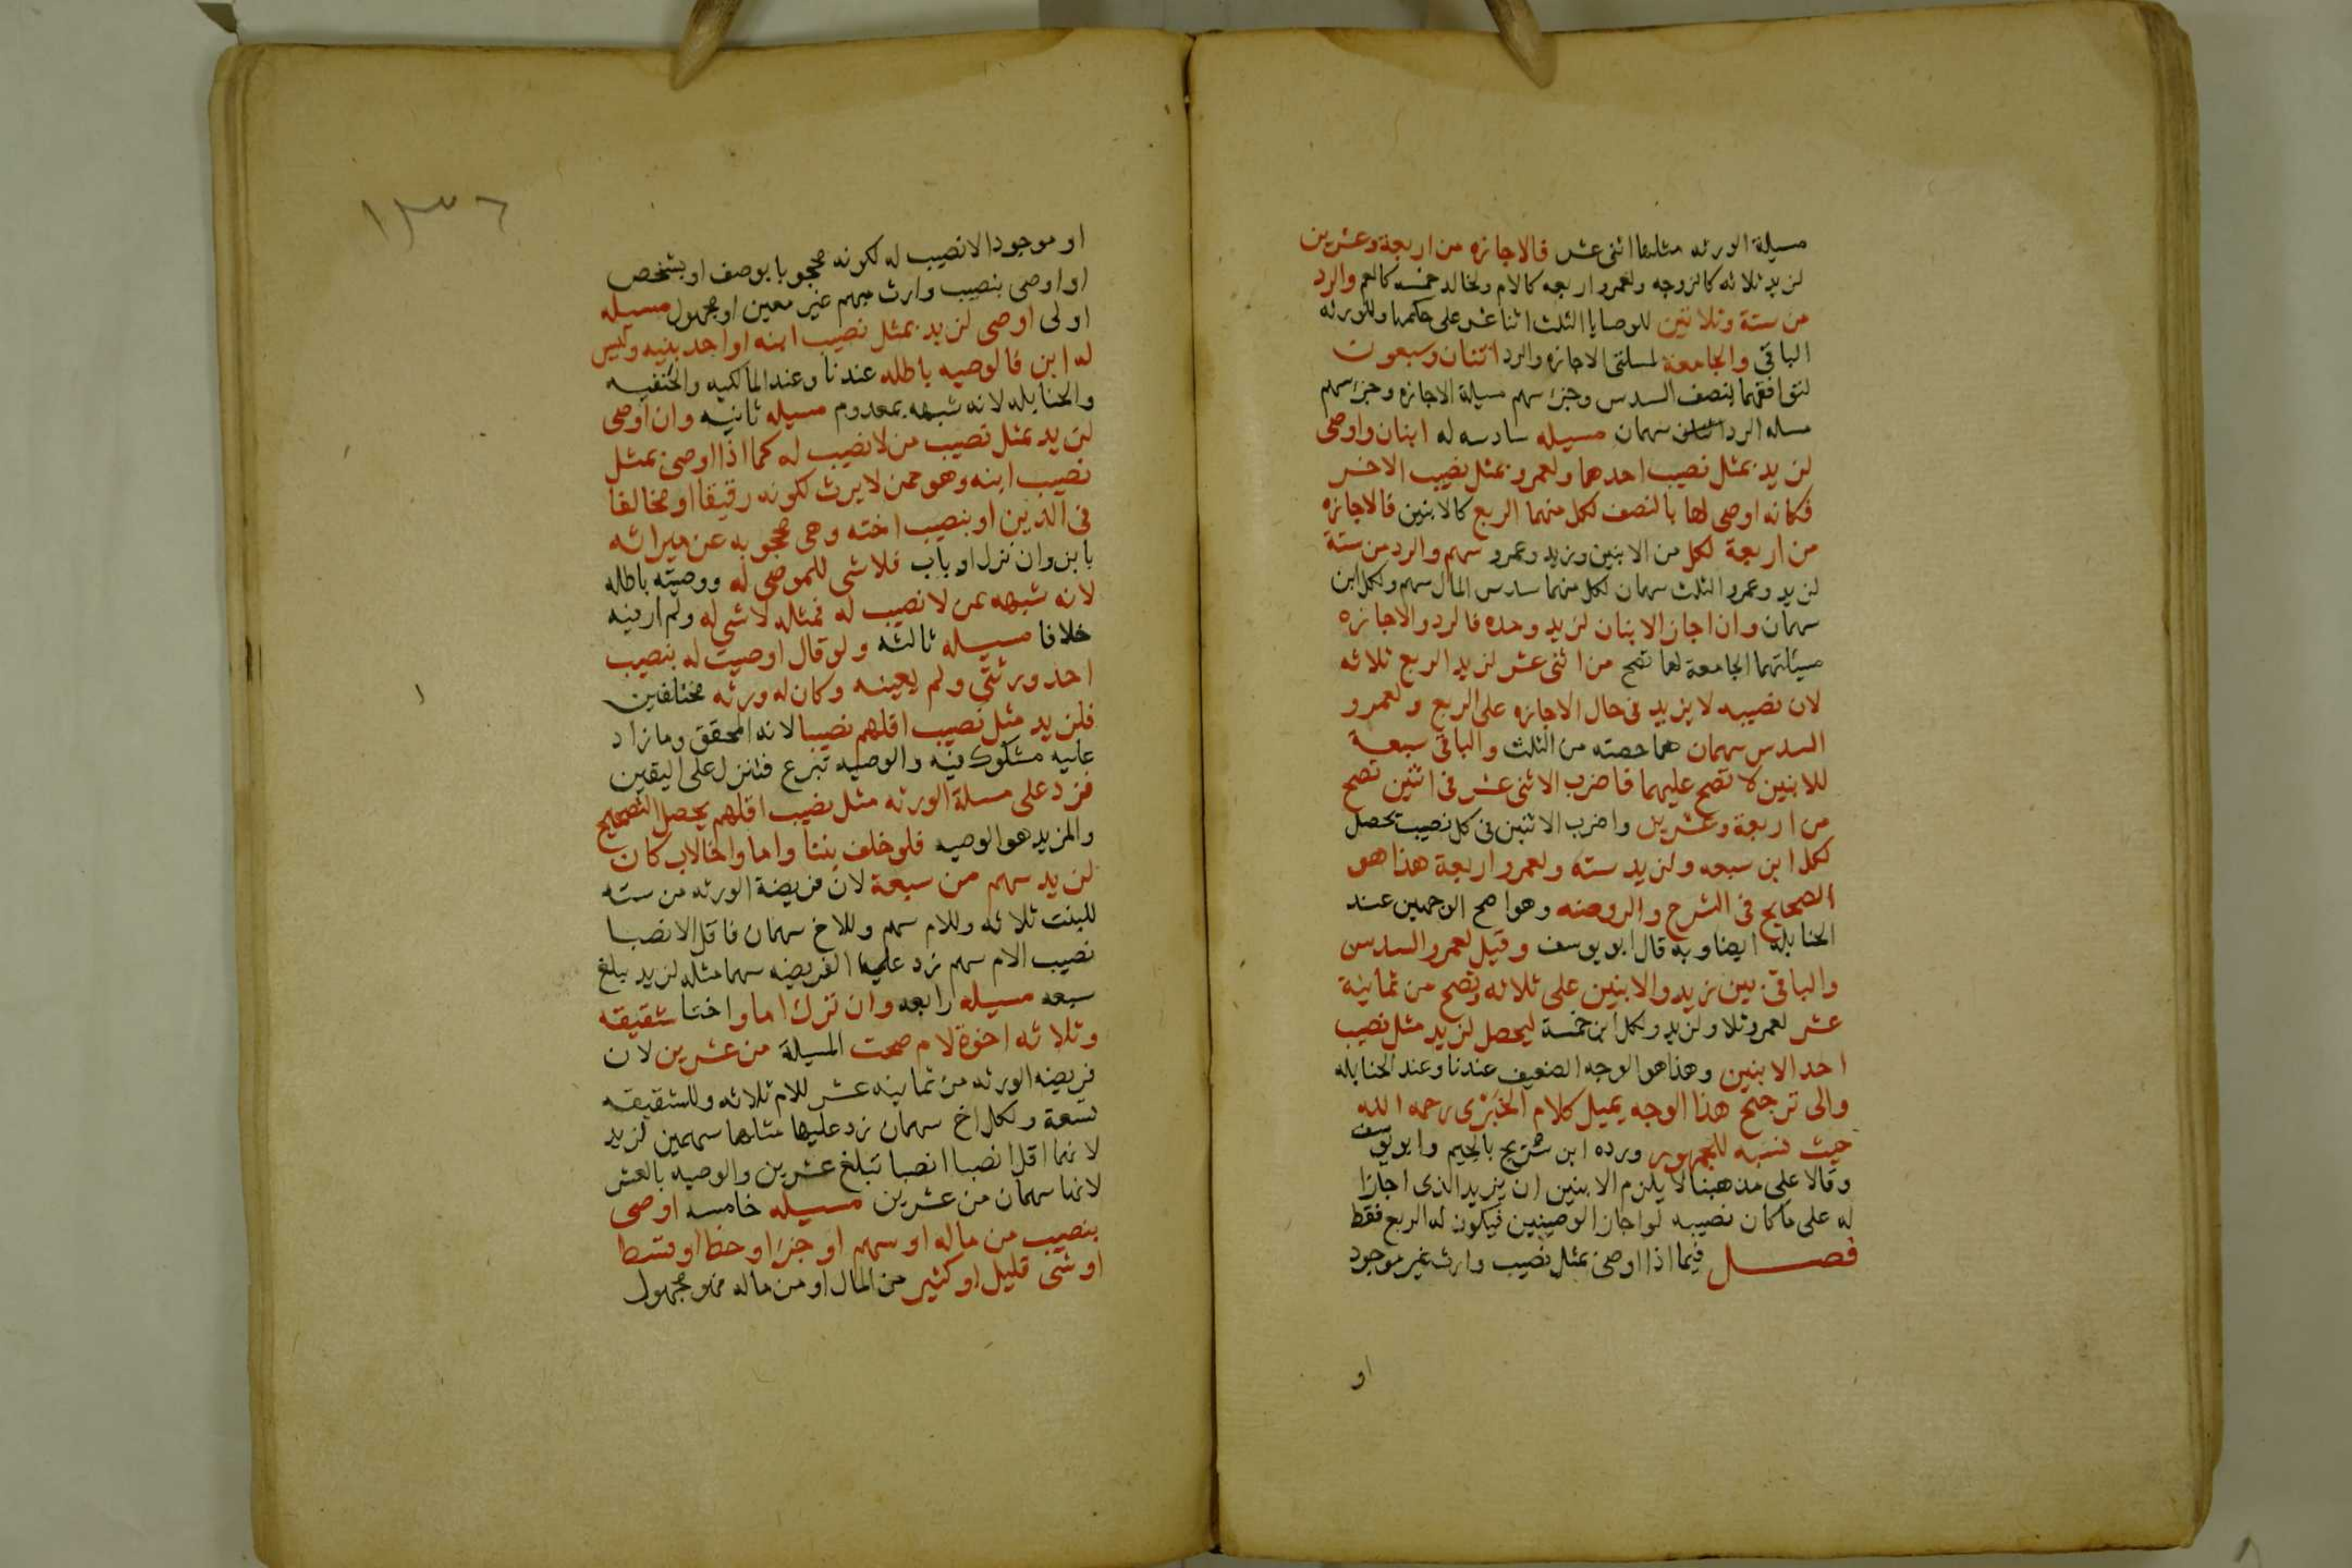 مسيلة الورثه مثلها اثنى عشر فالاجازه من اربعة وعشرين
لزيد ثلاثه كالزوجه ولعمرو اربعه كالام ولخالد خمسه كالعم والرد
من ستة وثلاثين للوصايا الثلث اثنا عشر على حكمها وللورثه
الباقي والجامعة لمسلتى الاجازه والرد اثنان وسبعون
لتوافقهما بنصف السدس وجزء سهم مسيلة الاجازه وجزء سهم
مسله الرد سهمان مسيله سادسه له ابنان واوصى
لزيد بمثل نصيب احدهما ولعمرو بمثل نصيب الاخر
فكانه اوصى لهما بالنصف لكل منهما الربع كالابنين فالاجازه
من اربعة لكل من الابنين وزيد وعمرو سهم والرد من ستة
لزيد وعمرو الثلث سهمان لكل منهما سدس المال سهم ولكل ابن
سهمان وان اجاز الابنان لزيد وحده فالرد والاجازه
مسئلتهما الجامعة لهما تصح من اثنى عشر لزيد الربع ثلاثه
لان نصيبه لا يزيد فى حال الاجازه على الربع ولعمرو
السدس سهمان هما حصته من الثلث والباقى سبعة
للابنين لا تصح عليهما فاضرب الاثنى عشر فى اثنين تصح
من اربعة وعشرين واضرب الاثنين فى كل نصيب يحصل
لكل ابن سبعه ولزيد سته ولعمرو اربعة هذا هو
الصحيح فى الشرح والروضه وهو اصح الوجهين عند
الحنابلة ايضا وبه قال ابو يوسف وقيل لعمرو السدس
والباقى بين زيد والابنين على ثلاثه وتصح من ثمانية
عشر لعمرو ثلا ولزيد ولكل ابن خمسة ليحصل لزيد مثل نصيب
احد الابنين وهذا هو الوجه الضعيف عندنا وعند الحنابله
والى ترجيح هذا الوجه يميل كلام الخبرى رحمه الله
حيث نسبه للجمهور ورده ابن شريح بالجيم وابو يوسف
وقالا على مذهبنا لا يلزم الابنين ان يزيد الذى اجازا
له على ما كان نصيبه لو اجاز الوصيتين فيكون له الربع فقط
فصل فيما اذا اوصى بمثل نصيب وارث غير موجود
او
١٣٦
او موجود الانصيب له لكونه محجوبا بوصف او بشخص
او اوصى بنصيب وارث مبهم غير معين او مجهول مسيله
اولى اوصى لزيد بمثل نصيب ابنه او احد بنيه وليس
له ابن فالوصيه باطله عندنا وعند المالكيه والحنفيه
والحنابله لانه شبهه بمعدوم مسيله ثانيه وان اوصى
لزيد بمثل نصيب من لا نصيب له كما اذا اوصى بمثل
نصيب ابنه وهو ممن لا يرث لكونه رقيقا او مخالفا
فى الدين او بنصيب اخته وهى محجوبه عن ميراثه
بابن وان نزل او باب فلا شى للموصى له ووصيته باطله
لانه شبهه بمن لا نصيب له فمثله لا شى له ولم ار فيه
خلافا مسيله ثالثه ولو قال اوصيت له بنصيب
احد ورثتى ولم يعينه وكان له ورثه مختلفين
فلزيد مثل نصيب اقلهم نصيبا لانه المحقق وما زاد
عليه مشكوك فيه والوصيه تبرع فتنزل على اليقين
فزد على مسلة الورثه مثل نصيب اقلهم يحصل التصحيح
والمزيد هو الوصيه فلو خلف بنتا واما واخا لاب كان
لزيد سهم من سبعة لان فريضة الورثه من سته
للبنت ثلاثه وللام سهم وللاخ سهمان فاقل الانصبا
نصيب الام سهم زد عليها الفريضه سهما مثله لزيد يبلغ
سبعه مسيله رابعه وان ترك اما واختا شقيقه
وثلاثه اخوة لام صحت المسيلة من عشرين لان
فريضه الورثه من ثمانيه عشر للام ثلاثه وللشقيقه
تسعة ولكل اخ سهمان زد عليها مثلها سهمين لزيد
لانهما اقل انصبا انصبا تبلغ عشرين والوصيه بالعشر
لانها سهمان من عشرين مسيله خامسه اوصى
بنصيب من ماله او سهم او جزء او حظ او قسط
او شى قليل او كثير من المال او من ماله فهو مجهول